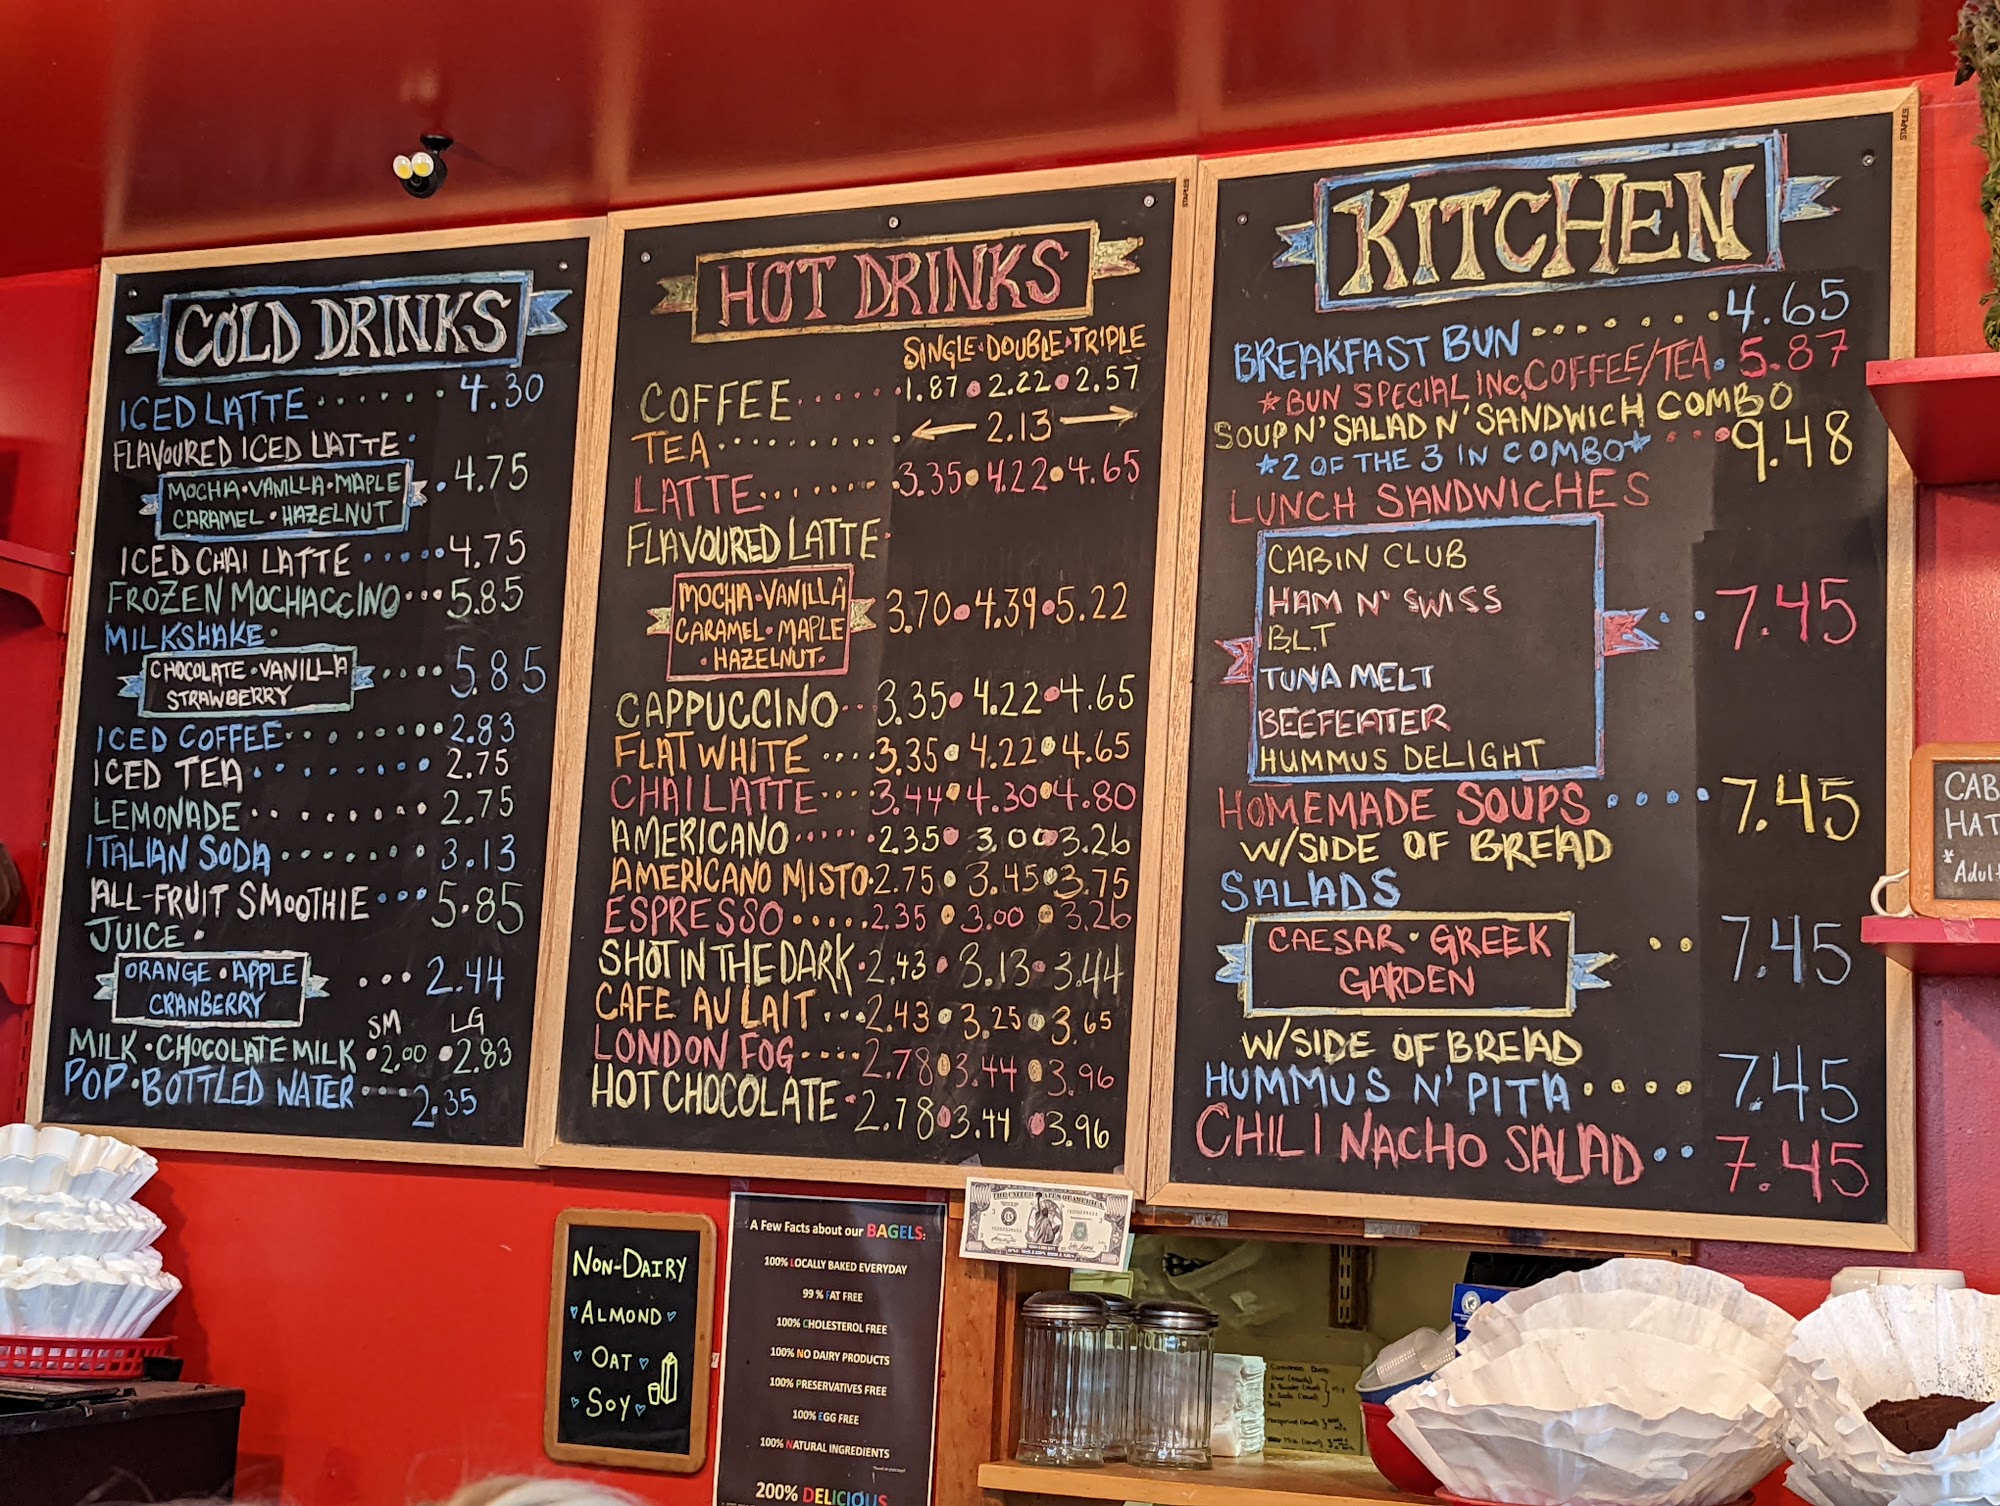 COLD DRINKS
ICED LATTE 4.30
FLAVOURED ICED LATTE
MOCHA • VANILLA • MAPLE
CARAMEL • HAZELNUT
4.75
ICED CHAI LATTE 4.75
FROZEN MOCHACCINO 5.85
MILKSHAKE
CHOCOLATE • VANILLA
STRAWBERRY
5.85
ICED COFFEE 2.83
ICED TEA 2.75
LEMONADE 2.75
ITALIAN SODA 3.13
ALL-FRUIT SMOOTHIE 5.85
JUICE
ORANGE • APPLE
CRANBERRY
2.44
SM LG
MILK • CHOCOLATE MILK 2.00 2.83
POP • BOTTLED WATER 2.35
HOT DRINKS
SINGLE • DOUBLE • TRIPLE
COFFEE 1.87 • 2.22 • 2.57
TEA 2.13
LATTE 3.35 • 4.22 • 4.65
FLAVOURED LATTE
MOCHA • VANILLA
CARAMEL • MAPLE
• HAZELNUT •
3.70 • 4.39 • 5.22
CAPPUCCINO 3.35 • 4.22 • 4.65
FLAT WHITE 3.35 • 4.22 • 4.65
CHAI LATTE 3.44 • 4.30 • 4.80
AMERICANO 2.35 • 3.00 • 3.26
AMERICANO MISTO 2.75 • 3.45 • 3.75
ESPRESSO 2.35 • 3.00 • 3.26
SHOT IN THE DARK 2.43 • 3.13 • 3.44
CAFE AU LAIT 2.43 • 3.25 • 3.65
LONDON FOG 2.78 • 3.44 • 3.96
HOT CHOCOLATE 2.78 • 3.44 • 3.96
STAPLES
KITCHEN
BREAKFAST BUN 4.65
*BUN SPECIAL INC. COFFEE/TEA 5.87
SOUP N' SALAD N' SANDWICH COMBO
*2 OF THE 3 IN COMBO* 9.48
LUNCH SANDWICHES
CABIN CLUB
HAM N' SWISS
B.L.T
TUNA MELT
BEEFEATER
HUMMUS DELIGHT
7.45
HOMEMADE SOUPS 7.45
W/SIDE OF BREAD
SALADS
CAESAR • GREEK
GARDEN
7.45
W/SIDE OF BREAD
HUMMUS N' PITA 7.45
CHILI NACHO SALAD 7.45
STAPLES
CAB
HAT
*Adul
NON-DAIRY
ALMOND
OAT
SOY
A Few Facts about our BAGELS:
100% LOCALLY BAKED EVERYDAY
99 % FAT FREE
100% CHOLESTEROL FREE
100% NO DAIRY PRODUCTS
100% PRESERVATIVES FREE
100% EGG FREE
100% NATURAL INGREDIENTS
200% DELICIOUS
THE UNITED STATES OF AMERICA